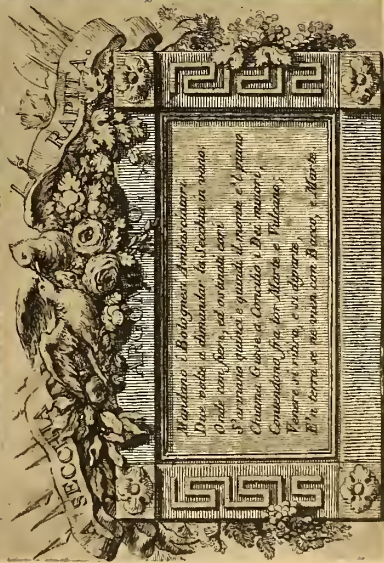 LA SECCHIA RAPITA.
ARGOMENTO.
Mandano i Bolognesi Ambasciatori
Due volte a dimandar la Secchia in vano;
Onde con fieri, ed ostinati cori
S'armano quinci e quindi il monte e 'l piano
Chiama Giove a Concilio i Dei minori;
Contendono fra lor Marte e Vulcano;
Venere si ritira, e si diparte,
E'n terra se ne vien con Bacco, e Marte.